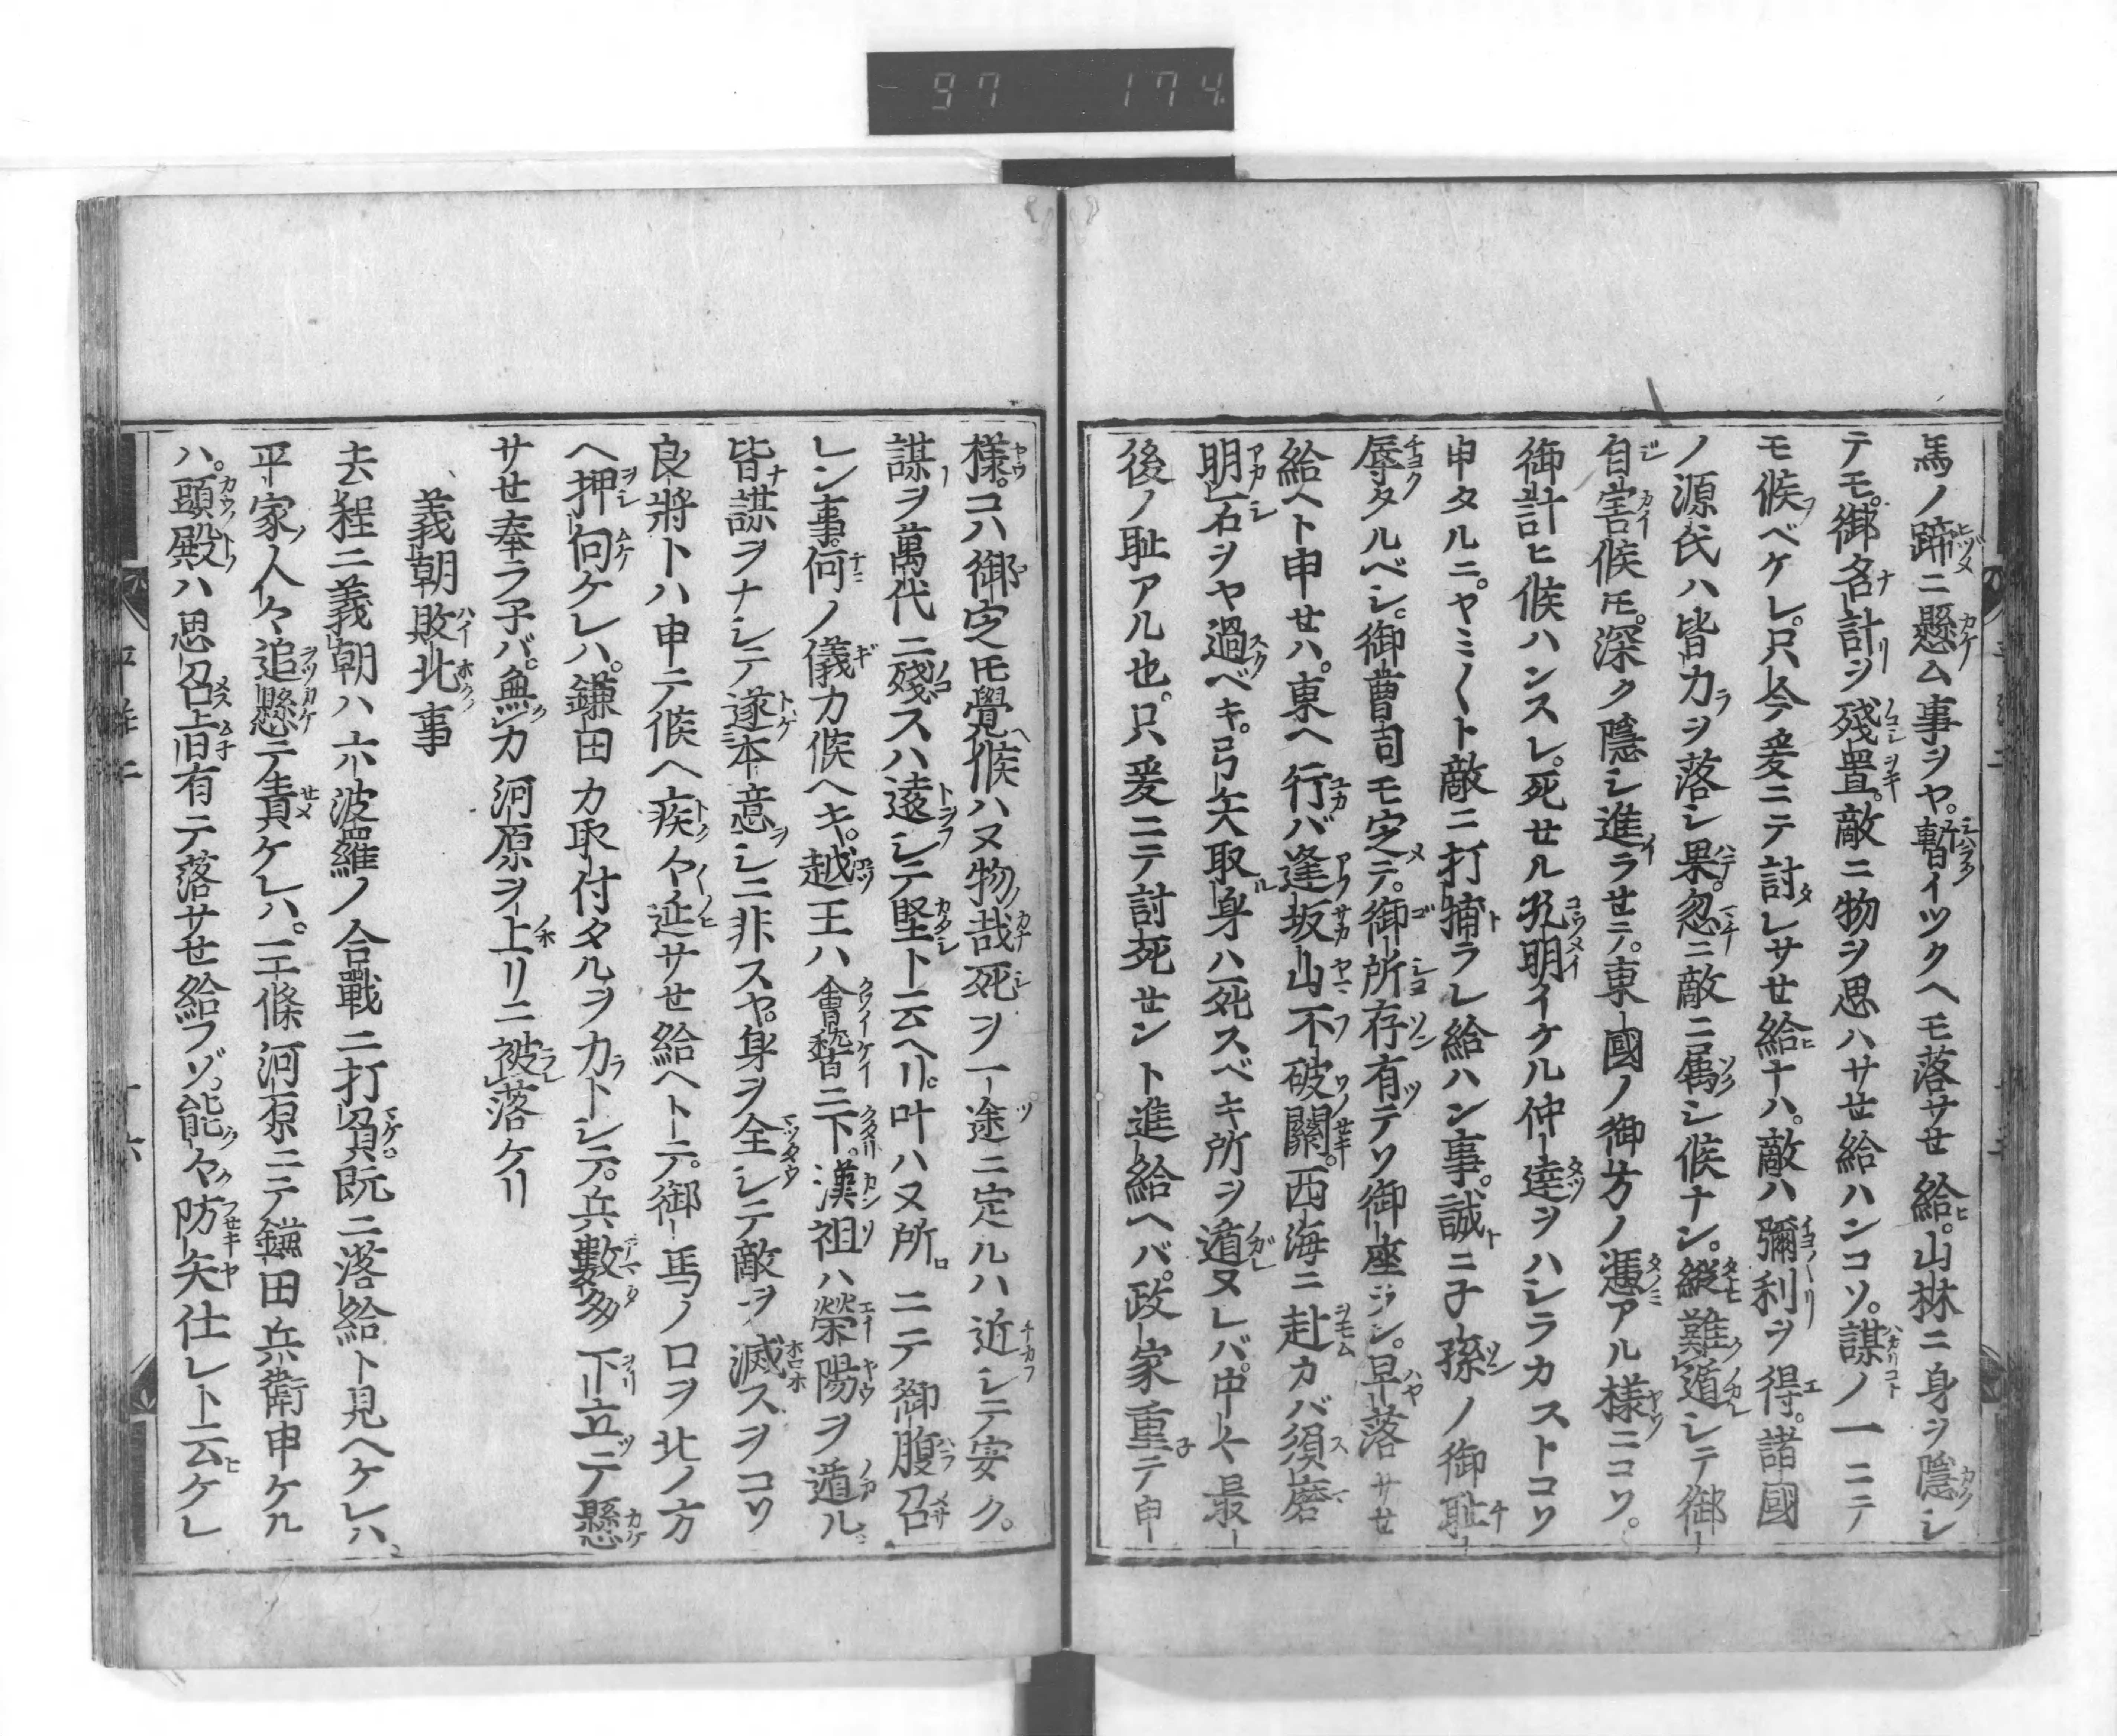 97 174
馬ノ蹄ニ懸ム事ヲヤ。暫イツクヘモ落サセ給。山林ニ身ヲ隠シ
テモ。御名計ヲ殘置。敵ニ物ヲ思ハサセ給ハンコソ。謀ノ一ニテ
モ候ベケレ。只今爰ニテ討レサせ給ナハ。敵ハ彌利ヲ得。諸國
ノ源氏ハ皆力ヲ落シ果。忽ニ敵ニ属シ候ナン。縦難遁シテ御
自害候圧。深ク隠シ進ラせテ。東國ノ御方ノ憑アル様ニコソ。
御計ヒ候ハンスレ。死せル孔明イケル仲達ヲハシラカストコソ
申タルニ。ヤミ〱ト敵ニ打捕ラレ給ハン事。誠ニ子孫ノ御耻
辱タルベシ。御曹司モ定テ。御所存有テソ御座ラン。早落サせ
給ヘト申せハ。東ヘ行バ逢坂山不破關。西海ニ赴カバ須磨
明石ヲヤ過ベキ。弓矢取身ハ死スベキ所ヲ遁ヌレバ。中々最
後ノ耻アル也。只爰ニテ討死せント進給ヘバ。政家重テ申
様。コハ御定圧覺候ハヌ物哉。死ヲ一途ニ定ルハ近シテ安ク。
謀ヲ萬代ニ殘スハ遠シテ堅ト云ヘリ。叶ハヌ所ニテ御腹召
レン事。何ノ儀カ候ヘキ。越王ハ會稽ニ下。漢祖ハ榮陽ヲ遁ル
皆謀ヲナシテ遂本意シニ非スヤ。身ヲ全シテ敵ヲ滅スヲコソ
良將トハ申テ候ヘ疾々延サせ給ヘトテ。御馬ノ口ヲ北ノ方
ヘ押向ケレハ。鎌田カ取付タルヲ力トシテ。兵數多下立テ懸
サせ奉ラ子バ。無力河原ヲ上リニ被落ケリ
義朝敗北事
去程ニ義朝ハ六波羅ノ合戰ニ打負。既ニ落給ト見ヘケレハ
平家ノ人々追懸テ責ケレハ。三條河原ニテ鎌田兵衛申ケル
ハ。頭殿ハ思召旨有テ落サせ給フゾ。能々防矢仕レト云ケレ